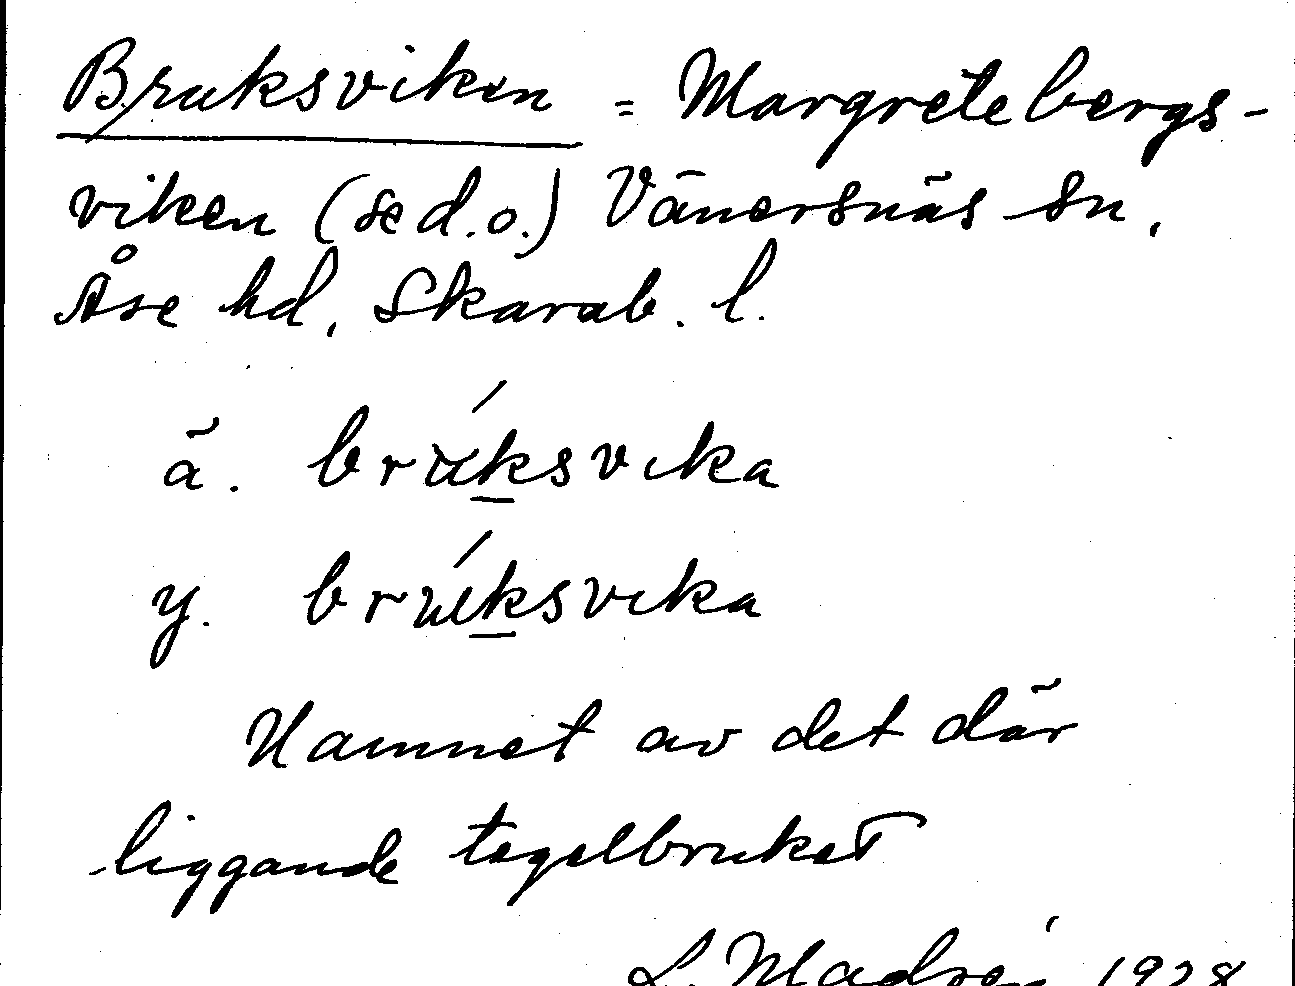 Bruksviken = Margretebergs-
viken (se d.o.) Vänersnäs sn,
Åse hd, Skarab. l.
ä. bruksvika
y. bruksvika
Namnet av det där
liggande tegelbruket
L. 1928